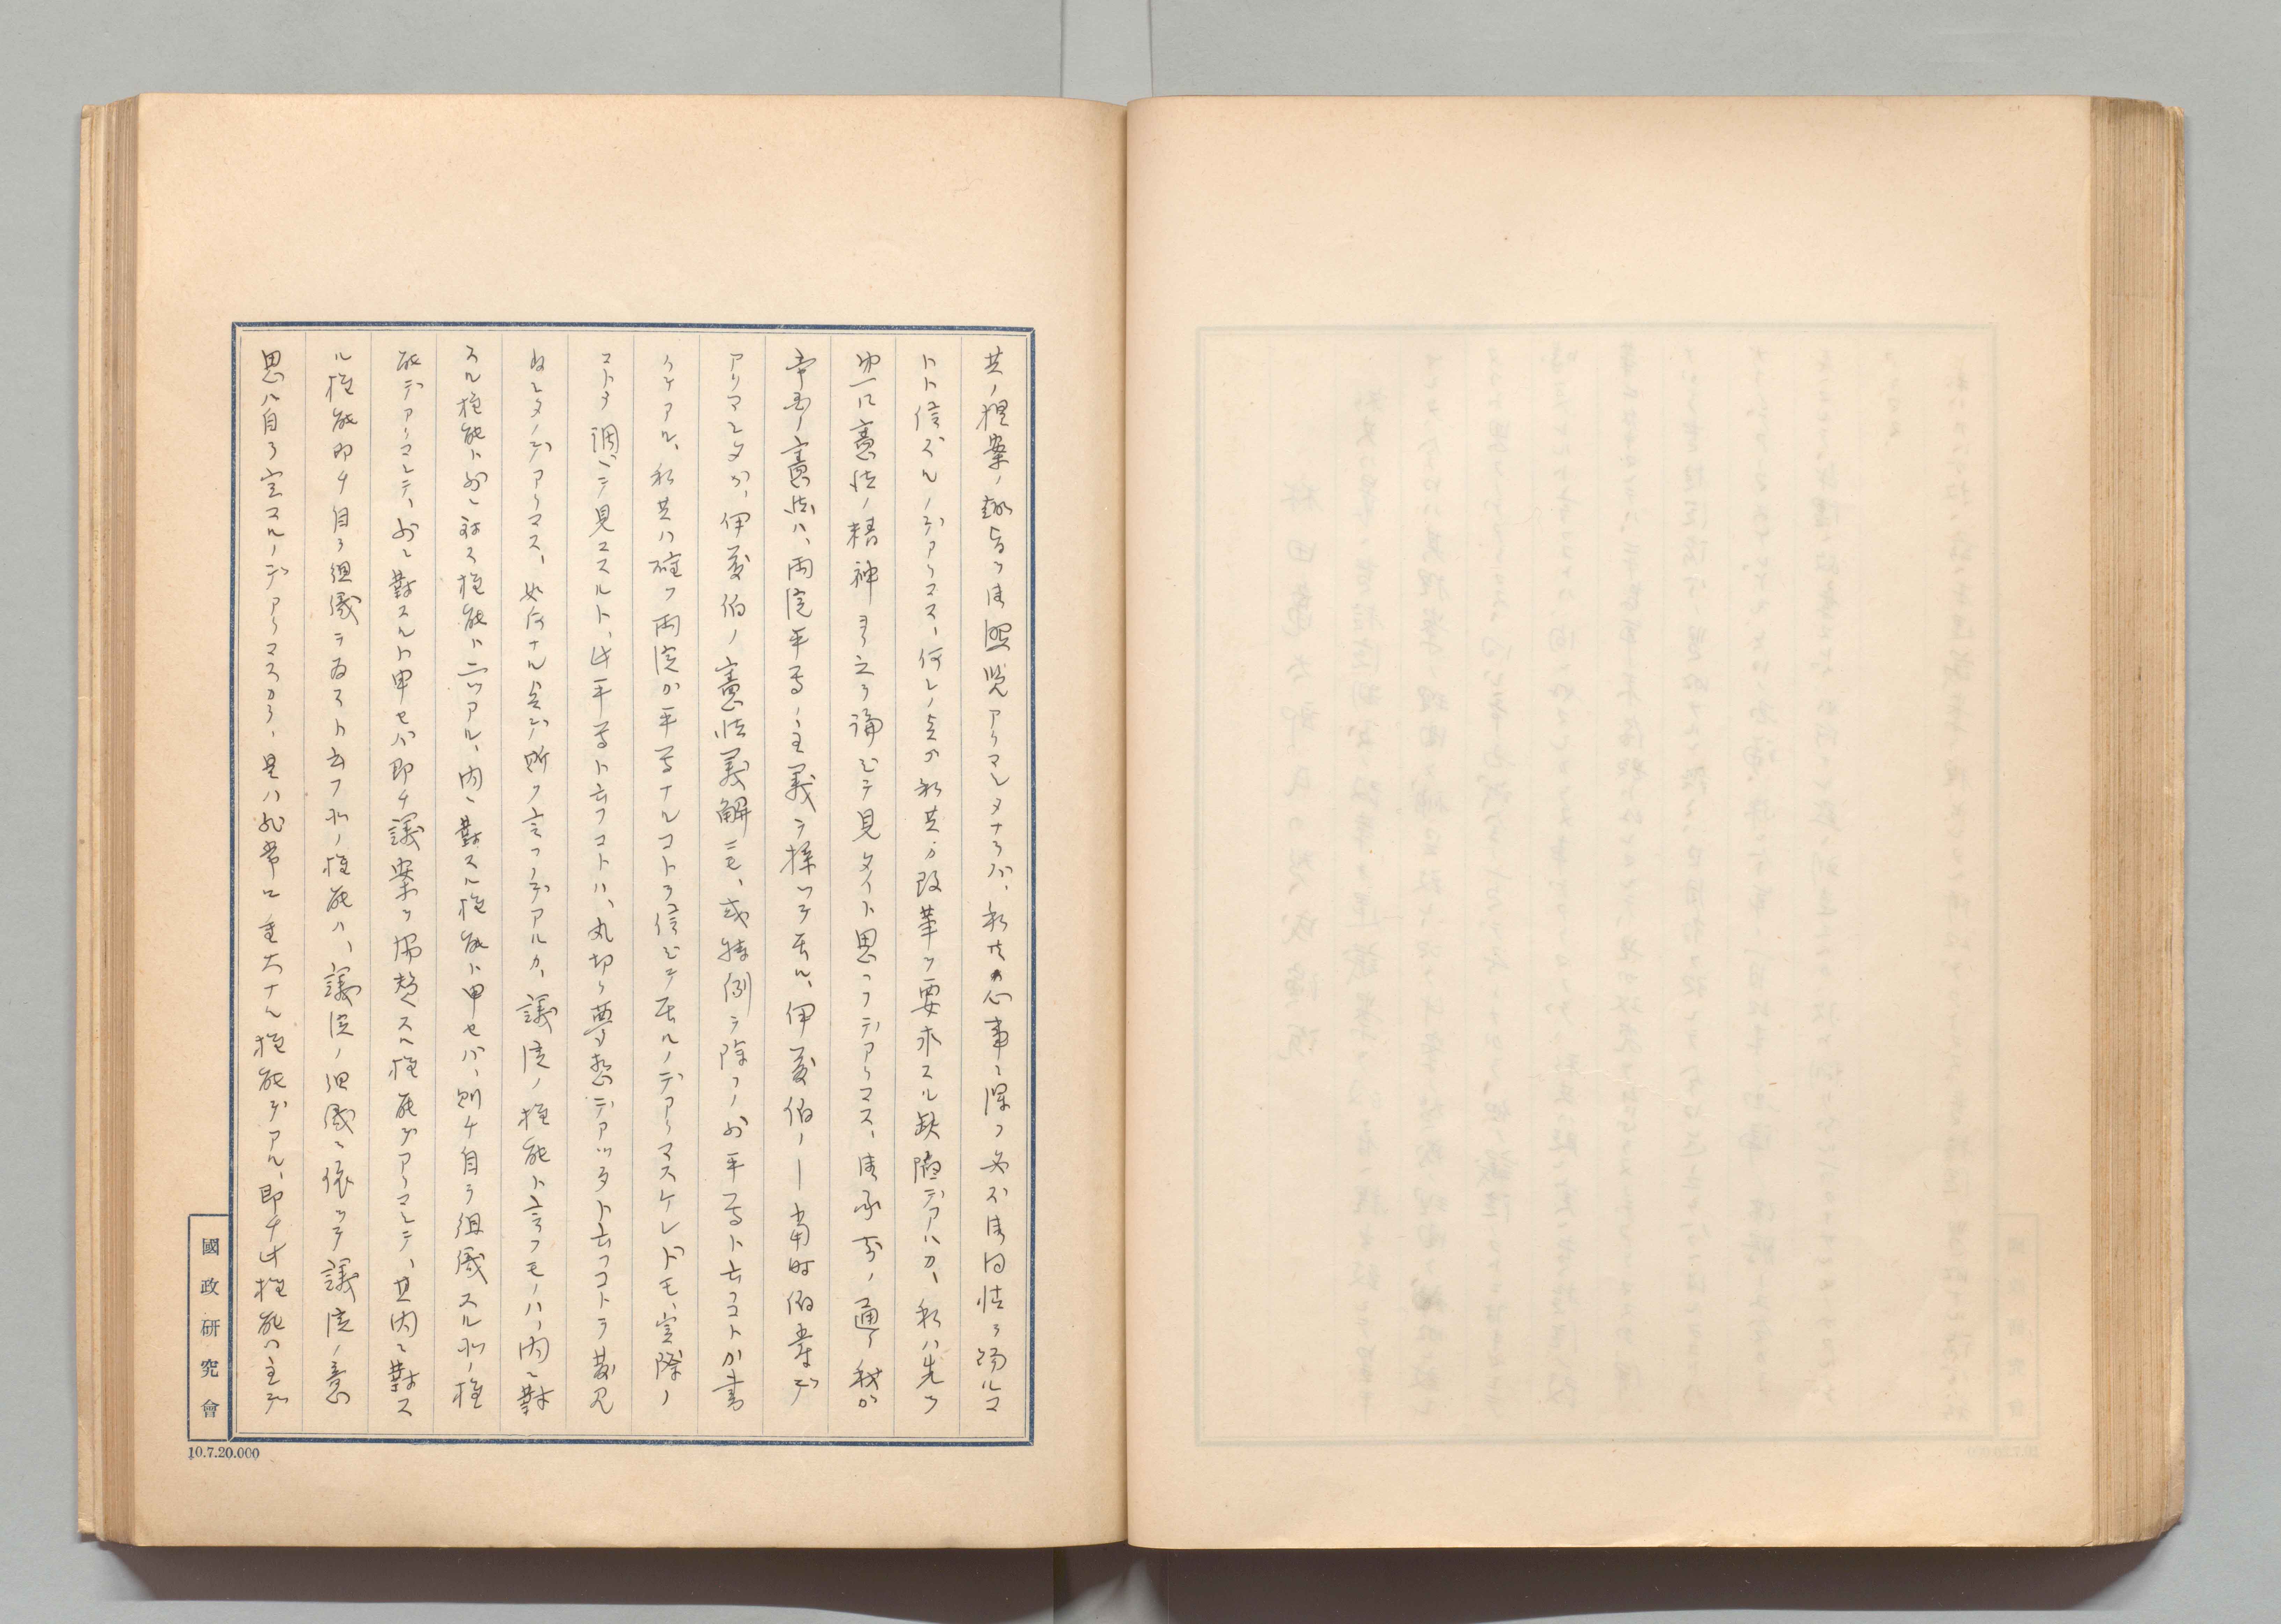 其ノ提案ノ趣旨ヲ御照覧アリマシタナラバ、私共の心事ニ深ク必ズ御同情ヲ賜ルコ
トト信ズルノデアリマス、何レノ点カ私共ガ改革ヲ要求スル缺陥デアルカ、私ハ先ヅ
第一ニ憲法ノ精神ヨリ之ヲ論ジテ見タイト思フノデアリマス、御承知ノ通リ我ガ
帝国ノ憲法ハ、両院平等ノ主義ヲ採ッテ居ル、伊藤伯ノ―当時伯爵デ
アリマシタガ、伊藤伯ノ憲法義解ニモ、或特例ヲ除クノ外平等ト云フコトガ書
イテアル、私共ハ確ク両院ガ平等ナルコトヲ信ジテ居ルノデアリマスケレドモ、実際ノ
コトヲ調ベテ見マスルト、此平等ト云フコトハ、丸切リ夢想デアッタト云フコトヲ發見
致シタノデアリマス、如何ナル点デ斯ク言フノデアルカ、議院ノ権能ト言フモノハ、内ニ對
スル権能ト外ニ對ス権能ト二ツアル、内ニ對スル権能ト申セバ、則チ自ラ組織スル所ノ権
能デアリマシテ、外ニ對スルト申セバ即チ議案ヲ協賛スル権能デアリマシテ、其内ニ對ス
ル権能即チ自ラ組織ヲ為スト云フ所ノ権能ハ、議院ノ組織ニ依ッテ議院ノ意
思ハ自ラ定マルノデアリマスカラ、是ハ非常ニ重大ナル権能デアル、即チ此権能ハ主デ
國政研究會
10.7.20.000